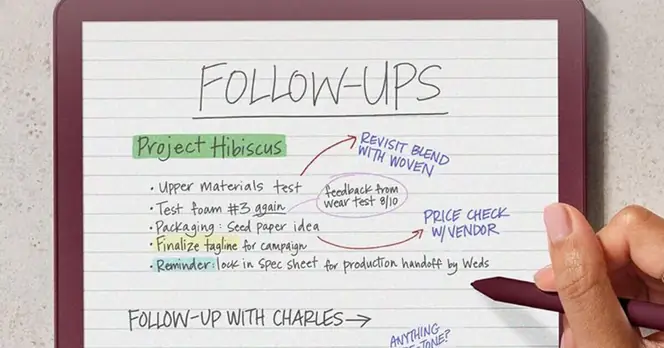 FOLLOW-UPS
Project Hibiscus
REVISIT BLEND
WITH WOVEN
• Upper materials test
• Test foam #3 again
feedback from
wear test 8/10
• Packaging: Seed paper idea
• Finalize tagline for campaign
PRICE CHECK
W/VENDOR
• Reminder: lock in Spec sheet for production handoff by Weds
FOLLOW-UP WITH CHARLES →
ANYTHING